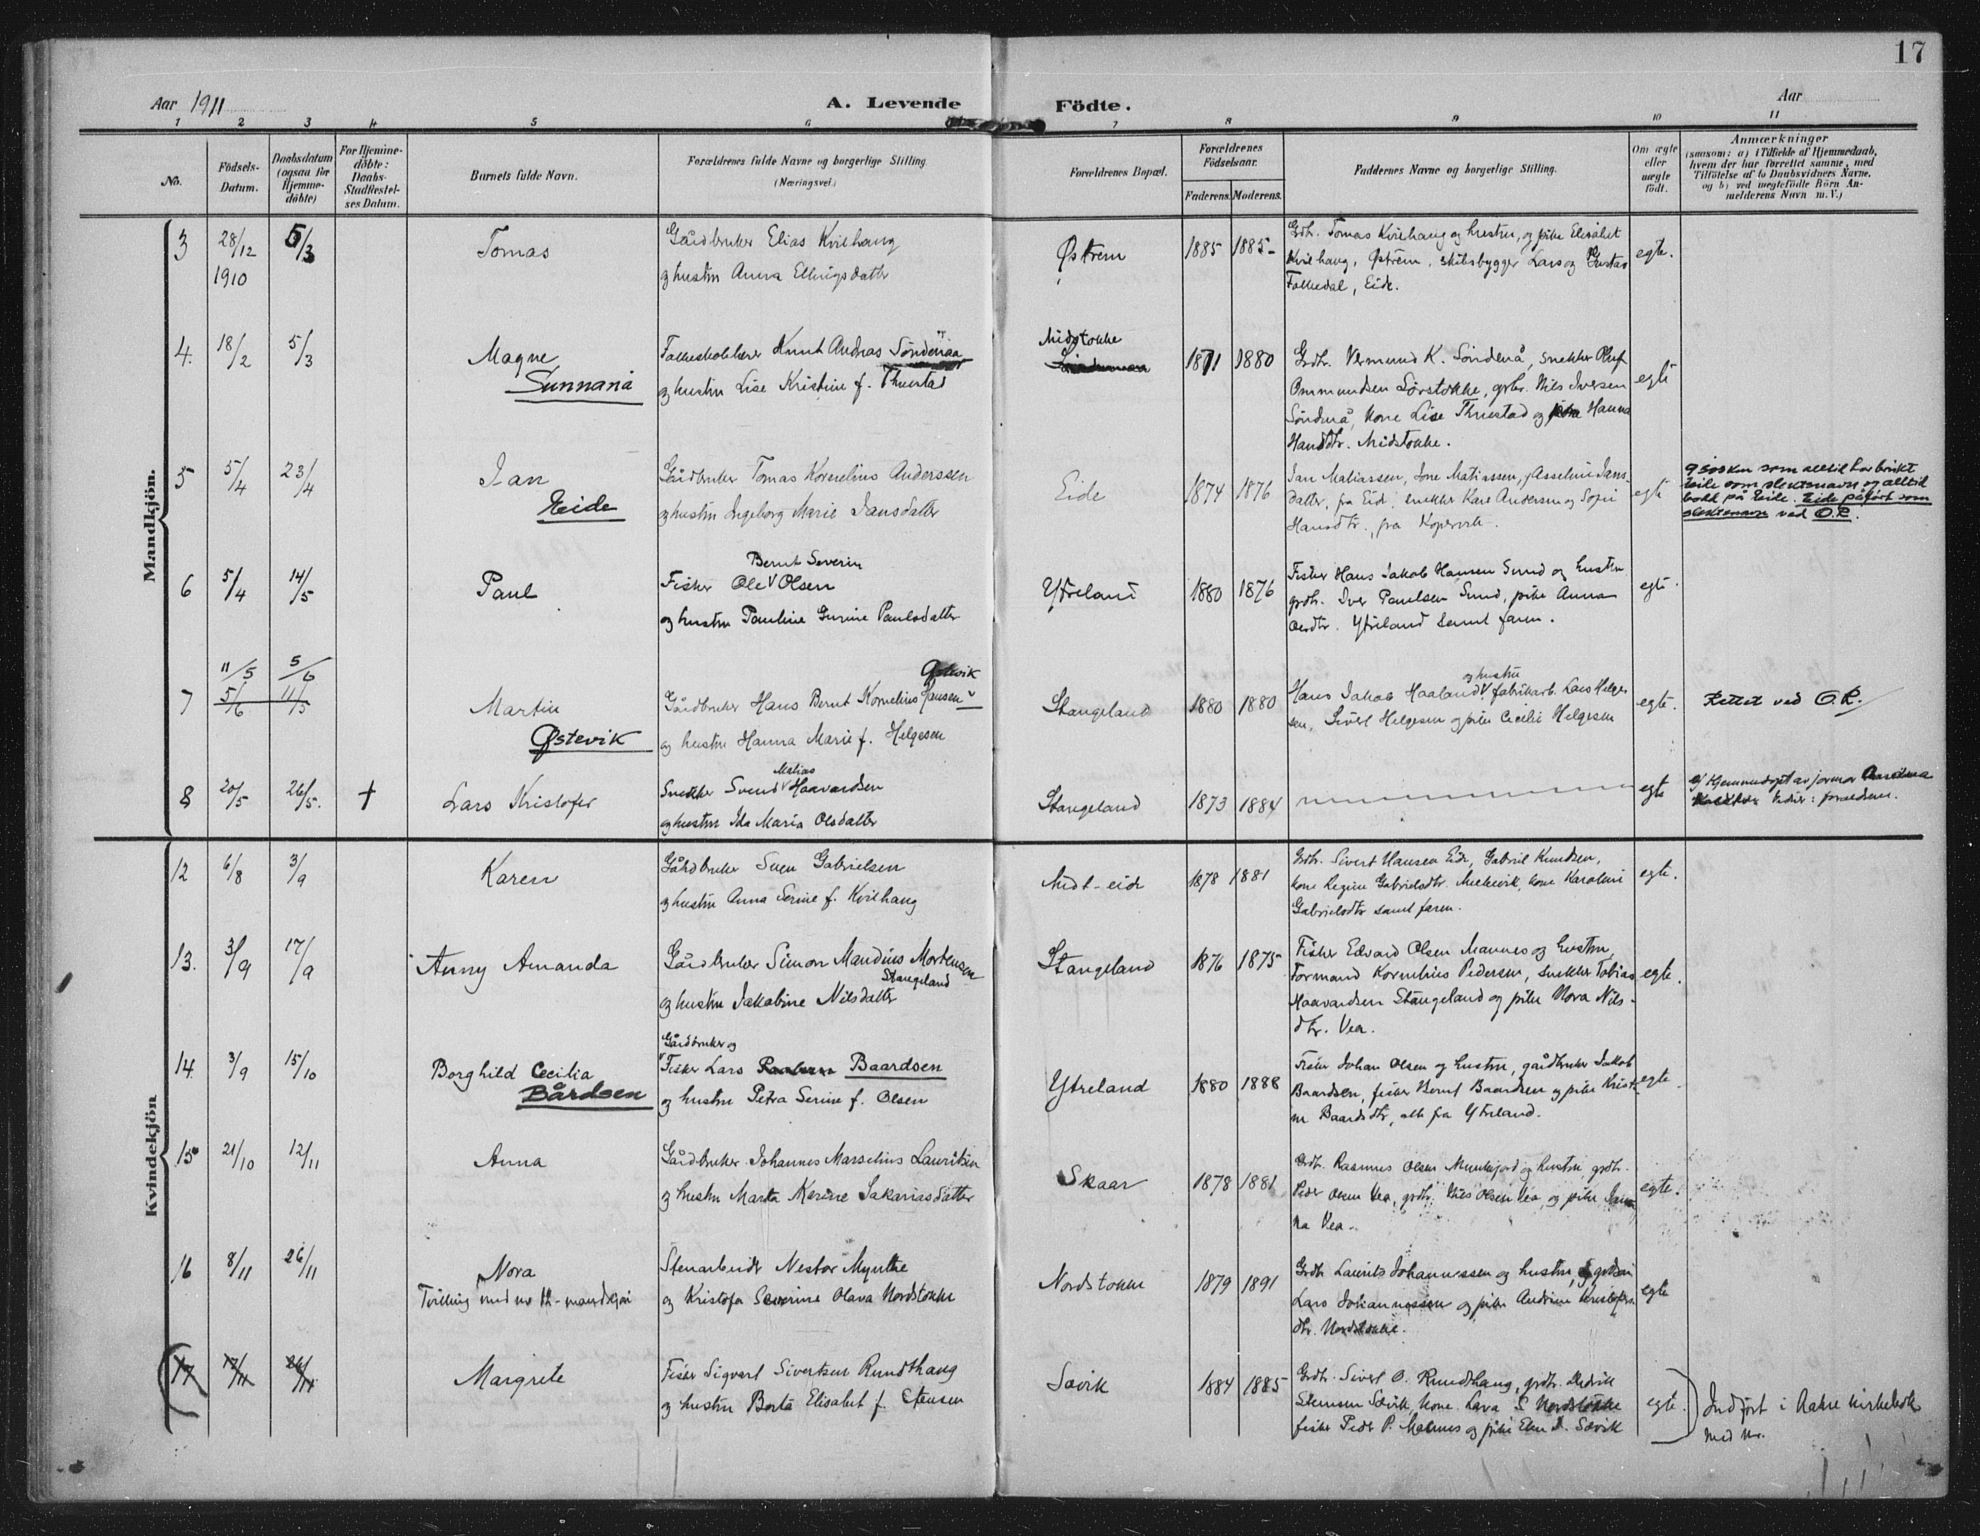 17
Aar 1911
A. Levende Födte.
Aar
1 2 3 4 5 6 7 8 9 10 11
No.
Födsels-Datum.
Daabsdatum (ogsaa for Hjemme-döbte)
For Hjemme-döbte: Daabs-Stadfestel-ses Datum.
Barnets fulde Navn.
Forældrenes fulde Navne og borgerlige Stilling (Næringsvei.)
Forældrenes Bopæl.
Forældrenes Födselsaar.
Faderens. Moderens.
Faddernes Navne og borgerlige Stilling.
Om ægte eller uægte födt.
Anmærkninger
(saasom: a) i Tilfælde af Hjemmedaab,
hvem der har forrettet samme, med
Tilföielse af to Daabsvidners Navne,
og b) ved uægtefödte Börn An-
melderens Navn m.V.)
Mandkjön.
3 28/12 1910 5/3 Tomas
Gårdbruker Elias Kvilhaug
og hustru Anna Ellingsdatter
Østrem 1885 1885
Grdbr. Tomas Kvilhaug og hustru, og pike Elisabet
Kvilhaug, Østrem, skibsbygger Lars og Gustav
Falkedal, Eide.
egte.
4. 18/2 5/3 Magne
Sunnanå
Folkeskolelærer Knut Andreas Söndenaa
og hustru Lise Kristine f. Thuestad
Midstokke
1871 1880
Grdbr. Vermund K. Söndenå, snekker Oluf
Ommundsen Sörstokke, grbr. Nils Iversen
Söndenå, kone Lise Thuestad og Hanna
Hansdtr. Midstokke.
egte
5 5/4 23/4 Jan
Eide
Gårdbruker Tomas Kornelius Anderssen
og hustru Ingeborg Marie Jansdatter
Eide 1874 1876
Jan Matiassen, Jone Matiassen, Asseline Jans-
datter, fra Eide, snekker Kare Andersen og Sofie
Hansdtr., fra Kopervik.
egte
som alltid har brukt
Eide som slektsnavn og alltid
bodd på Eide. Eide påført som
slektsnavn ved O.R.
6 5/4 14/5 Paul
Bernt Severin
Fisker Ole V Olsen
og hustru Pauline Gurine Paulsdatter
Ytreland 1880 1876
Fisker Hans Jakob Hansen Sund og hustru
grdbr. Iver Paulsen Sund, pike Anna
Olsdtr. Ytreland samt faren.
egte
11/5 5/6
7 5/6 11/5 Martin
Østevik
Østevik
Gårdbruker Hans Bernt Kornelius Jansen
og hustru Hanna Marie f. Helgesen
Stangeland 1880 1880
og hustru
Hans Jakob Haaland V fabrikarb. Lars Helge-
sen, Sivert Helgesen og pike Cecilie Helgesen
egte. Rettet ved O.R.
8 20/5 26/5. + Lars Kristofer
Matias
Snekker Svend V Haavardsen
og hustru Ida Maria Olsdatter
Stangeland 1873 1884
egte
a/ Hjemmedöpt av jormor
Vidner: forældrene.
Kvindekjön
12 6/8 3/9 Karen
Gårdbruker Sven Gabrielsen
og hustru Anna Serine f. Kvilhaug
Midt-eide 1878 1881
Grdbr. Sivert Hansen Eide, Gabriel Knudsen,
kone Regine Gabrielsdtr. Mælevik, kone Karoline
Gabrielsdtr samt faren.
egte.
13. 3/9 17/9 Anny Amanda
Gårdbruker Simon Mandius Mortensen
Stangeland
og hustru Jakobine Nilsdatter
Stangeland 1876 1875
Fisker Edvard Olsen Mannes og hustru,
Formand Kornelius Pedersen, snekker Tobias
Haavardsen Stangeland og pike Nora Nils-
dtr. Vea.
egte.
14. 3/9 15/10 Borghild Cecilia
Bårdsen
Gårdbruker og
Fisker Lars Baardsen
og hustru Petra Serine f. Olsen
Ytreland 1880 1888
Fisker Johan Olsen og hustru, gårdbruker Jakob
Baardsen, fisker Bernt Baardsen og pike Kristi-
ne Baardsdtr, alle fra Ytreland.
egte.
15 21/10 12/11 Anna
Gårdbruker Johannes Marselius Lauritsen
og hustru Marta Karine Sakariasdatter
Skaar 1878 1881
Grdbr. Rasmus Olsen Munkejord og hustru, grdbr.
Peder Olsen Vea, grdbr. Nils Olsen Vea, og pike
na Vea.
egte.
16 8/11 26/11 Nora
Tvilling med no 12-mandkjön
Stenarbeider Nestor Myrthe
og Kristofa Severine Olava Nordstokke
Nordstokke 1879 1891
Grdbr. Laurits Johannessen og hustru,
Lars Johannessen og pike Andrine Kristofers
dtr. Nordstokke.
egte
17 17/11 26/11 Margrete
Fisker Sigvart Sivertsen Rundthaug
og hustru Berta Elisabet f. Stensen
Sævik 1884 1885
Grdbr. Sivert O. Rundthaug, grdbr. Hedvik
Stensen Sævik, kone Lava S Nordstokke
fisker Peder P. Mannes og pike Elen I. Sævik
egte.
Indfört i Aakre kirkebok
med no.